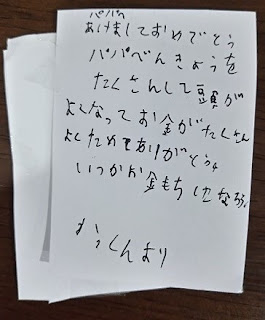 パパへ
あけましておめでとう
パパべんきょうを
たくさんして頭が
よくなってお金がたくさん
よくためてありがとう。
いつかお金もちになろう。
くんより